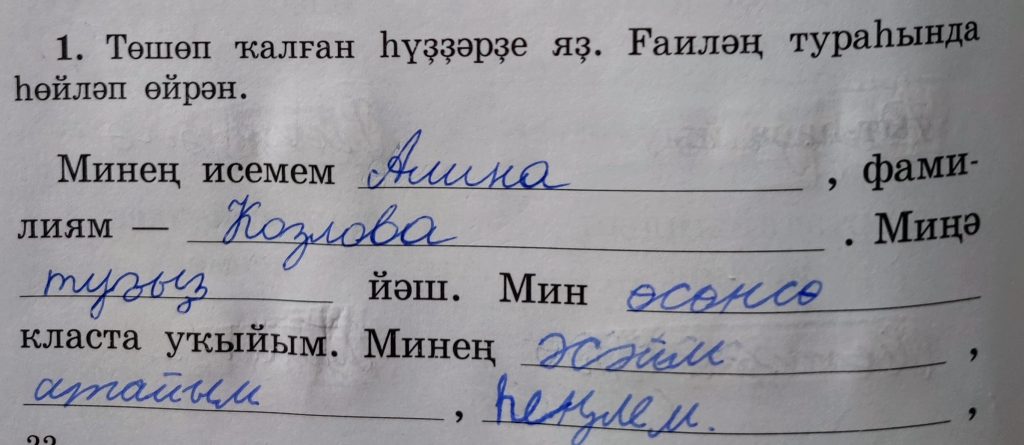 1. Төшөп ҡалған һүҙҙәрҙе яҙ. Ғаиләң тураһында
һөйләп өйрән.
Минең исемем Алина , фами-
лиям — Козлова . Миңә
туғыҙ йәш. Мин өсөнсө
класта уҡыйым. Минең әсәйем ,
атайым , һеңлем. ,